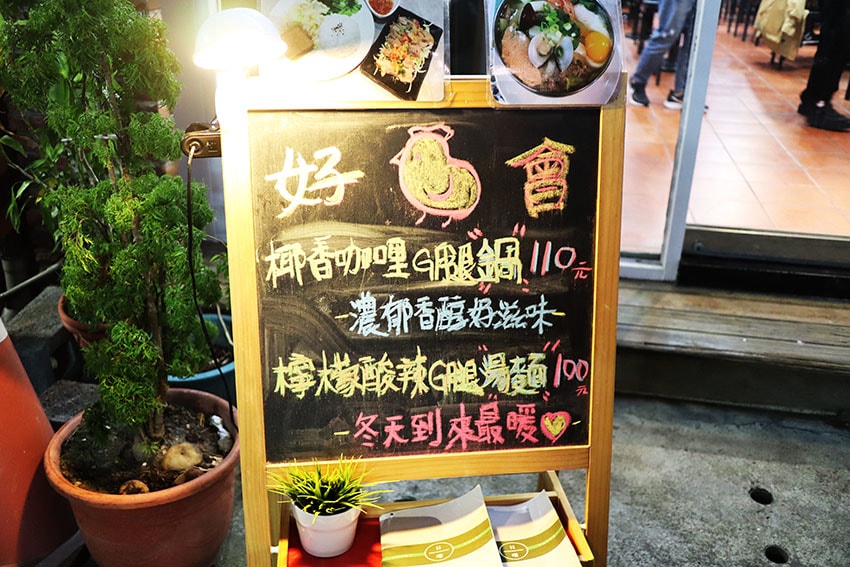 好 會
椰香咖哩G腿"鍋"110元
-濃郁香醇好滋味-
檸檬酸辣G腿"湯麵"100
-冬天到來最暖